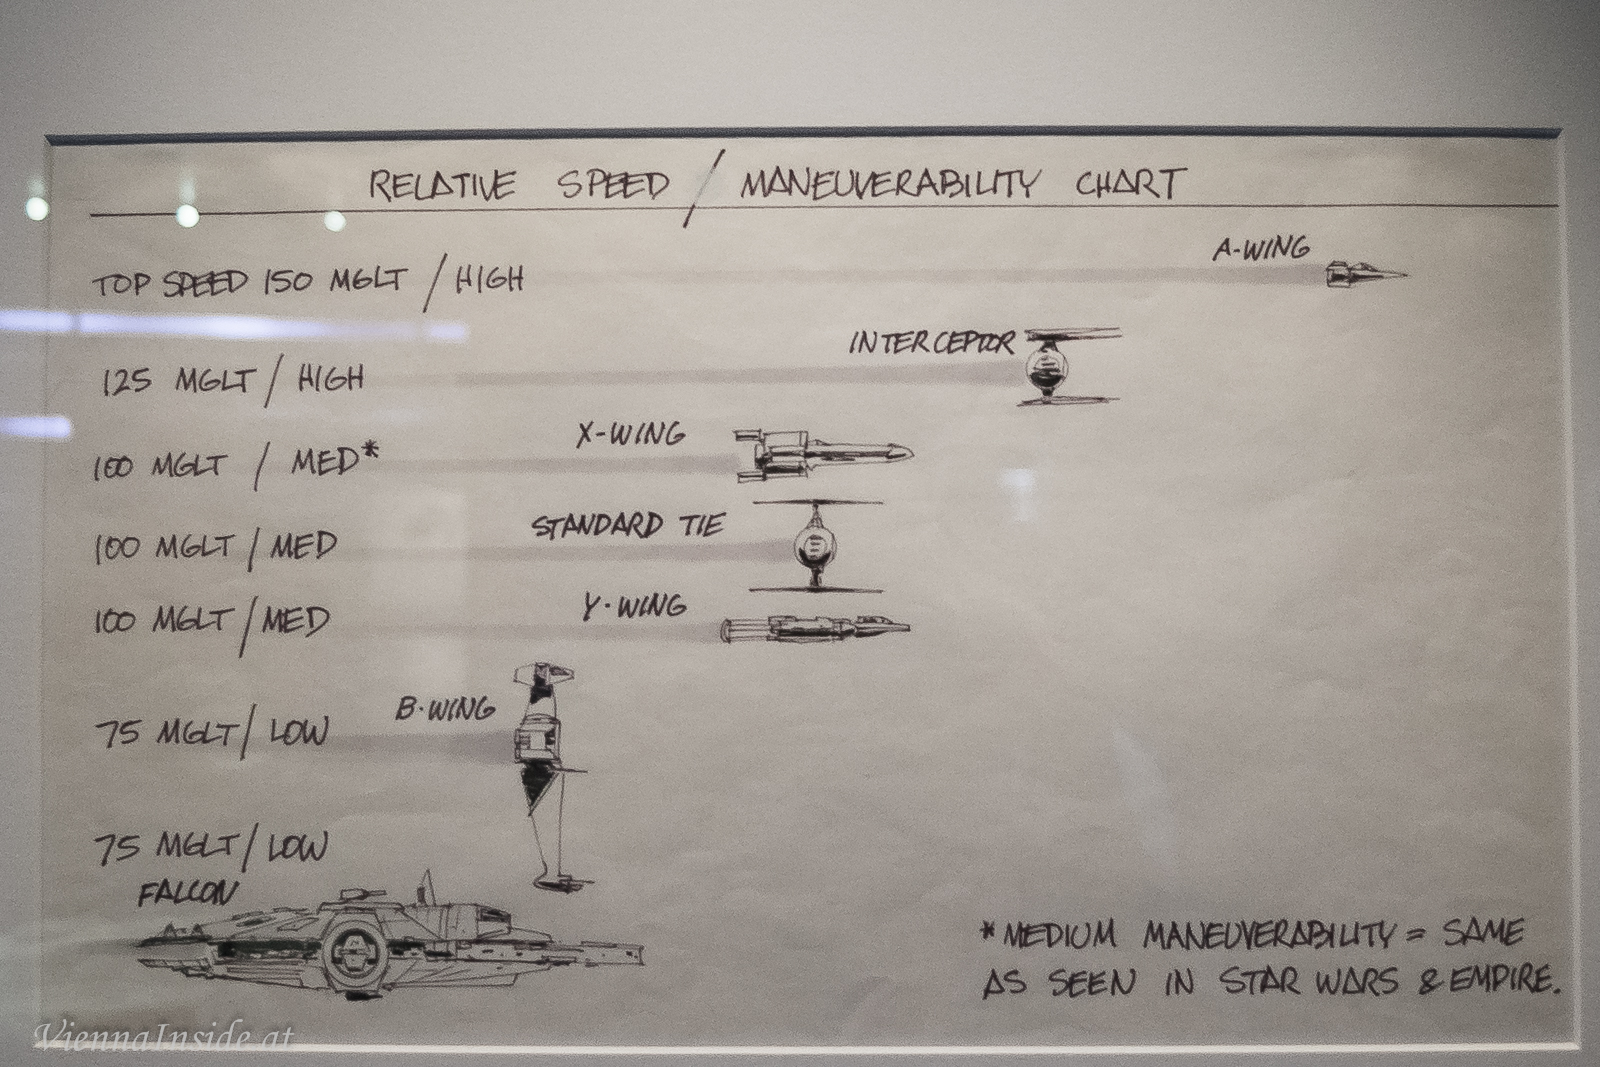 RELATIVE SPEED / MANEUVERABILITY CHART
A-WING
TOP SPEED 150 MGLT / HIGH
INTERCEPTOR
125 MGLT / HIGH
X-WING
100 MGLT / MED*
STANDARD TIE
100 MGLT / MED
Y-WING
100 MGLT / MED
B-WING
75 MGLT / LOW
75 MGLT / LOW
FALCON
*MEDIUM MANEUVERABILITY = SAME
AS SEEN IN STAR WARS & EMPIRE.
ViennaInside.at